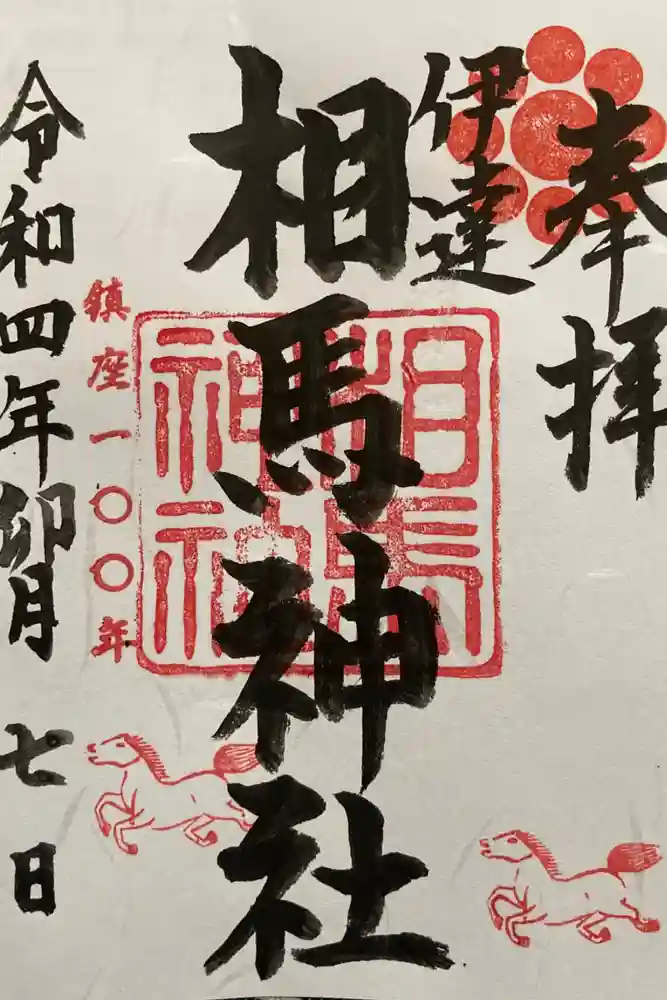 奉拝
伊達
相馬神社
相馬
神社
鎮座一〇〇年
令和四年卯月七日